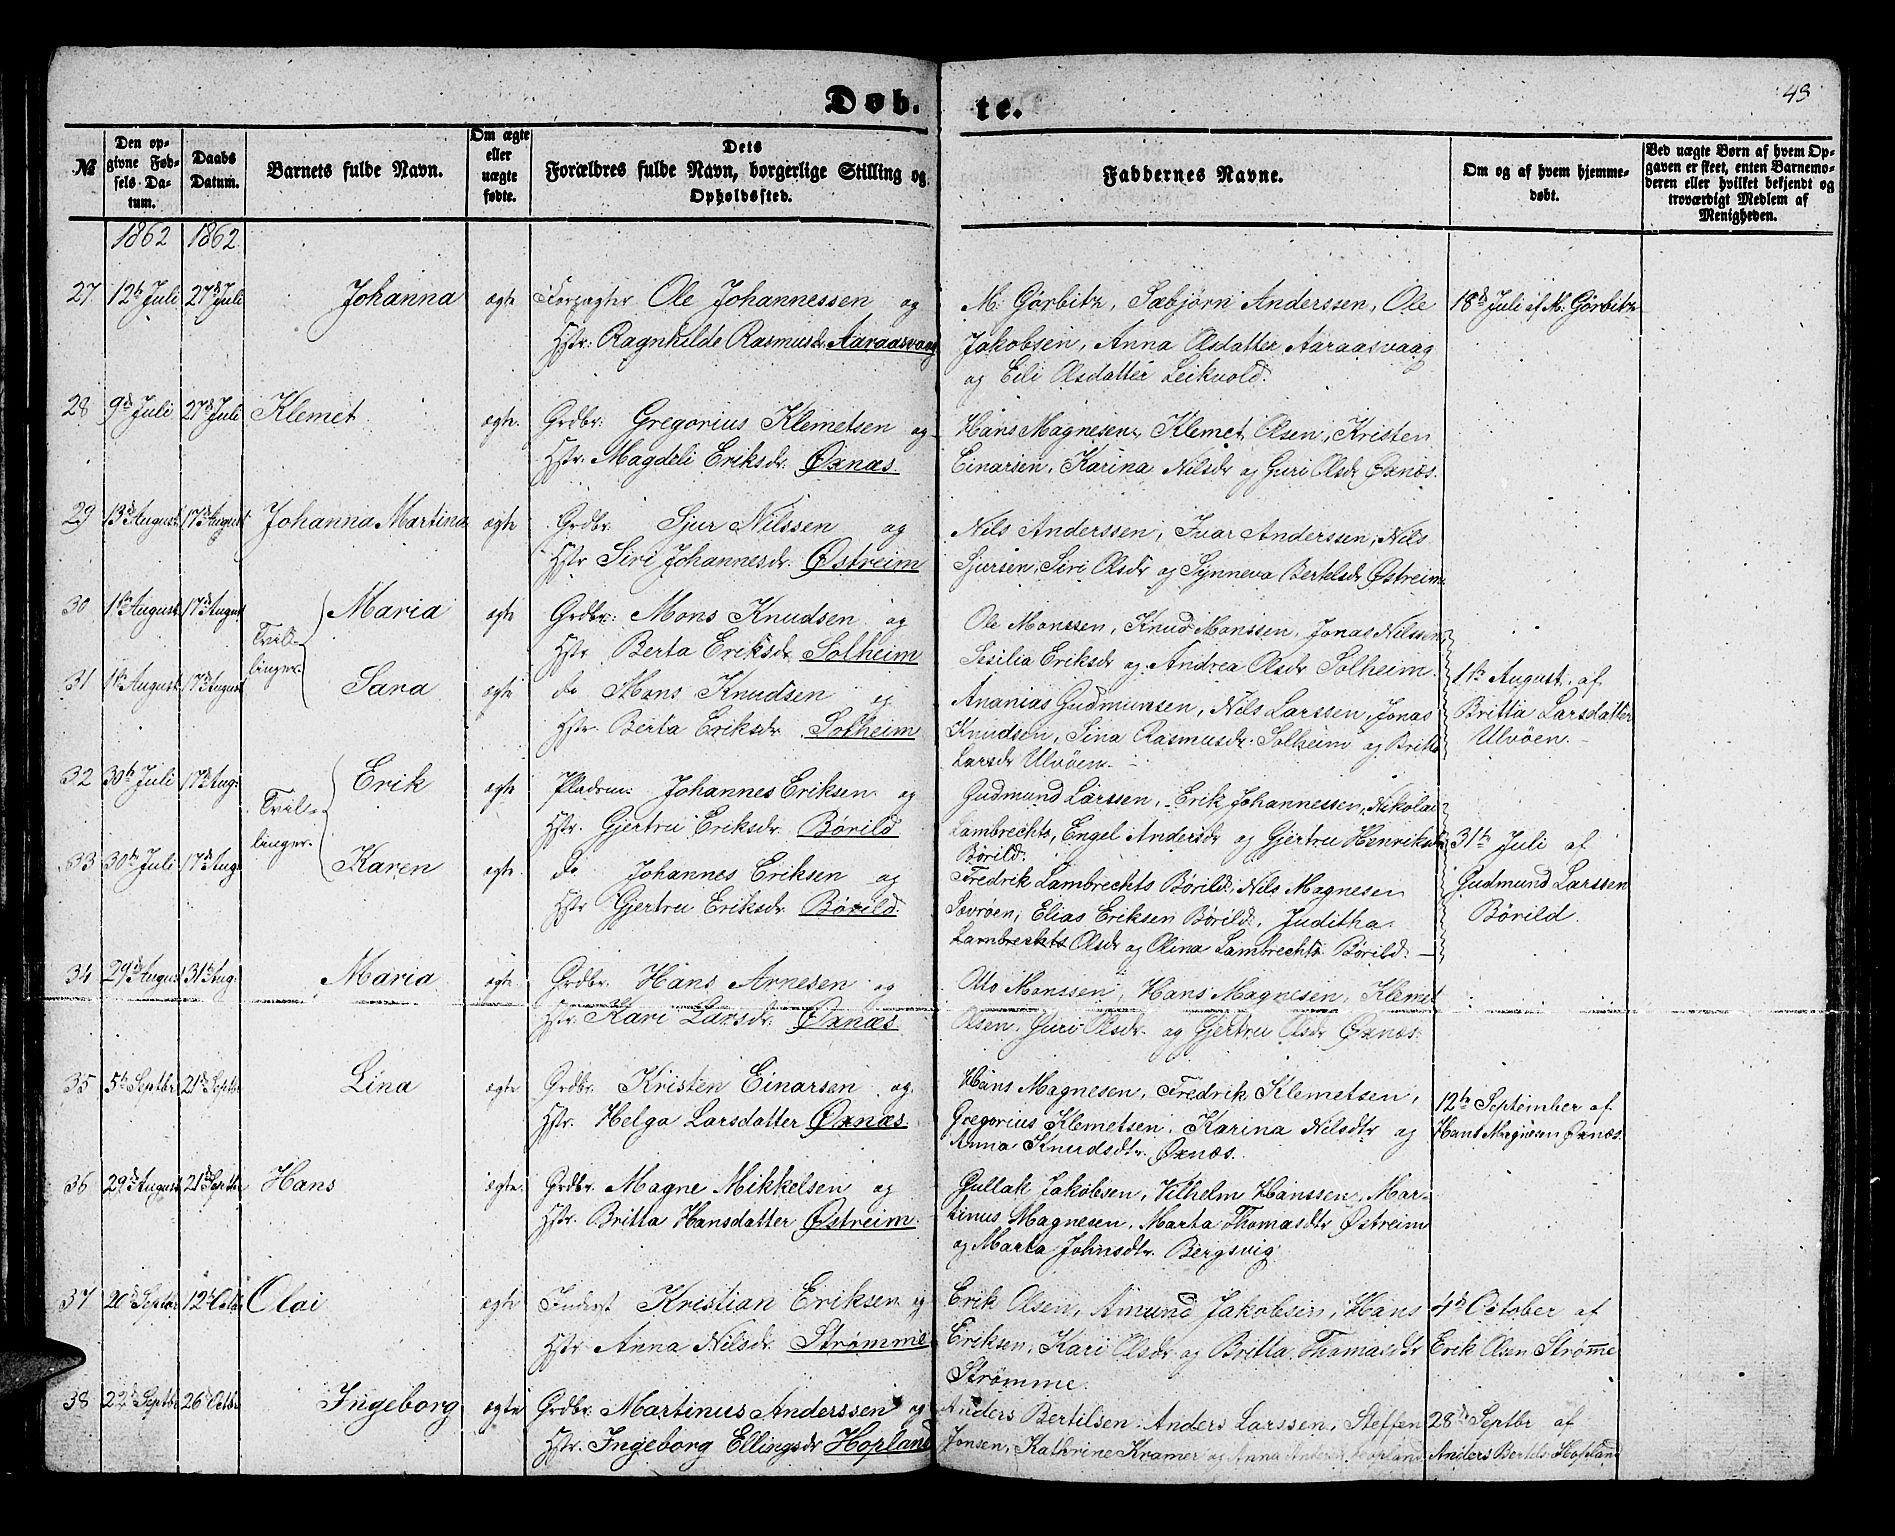 Døb. te.
43
№
Den opgivne Fødsels-Datum.
Daabs Datum.
Barnets fulde Navn.
Om ægte eller uægte fødte.
Dets Forældres fulde Navn, borgerlige Stilling og Opholdssted.
Faddernes Navne.
Om og af hvem hjemmedøbt.
Ved uægte Børn af hvem Opgaven er skeet, enten Barnemoderen eller hvilket bekjendt og troværdigt Medlem af Menigheden.
1862 1862
27 12te Juli 27de Juli Johanna ægte Ole Johannessen og
Hstr. Ragnhilde Rasmusdr. Aaraasvaag
M. Görbitz, Sæbjørn Anderssen, Ole
Jakobsen, Anna Olsdatter Aaraasvaag
og Eili Olsdatter Leikvold.
18de Juli af M. Görbitz
28 9de Juli 27de Juli Klemet ægte. Grdbr. Gregorius Klemetsen og
Hstr. Magdeli Eriksdr. Øxnæs.
Hans Magnesen, Klemet Olsen, Kristen
Einarsen, Karina Nilsdr og Guri Olsdr Øxnæs.
29 13de August 17de August Johanna Martina ægte Grdbr. Sjur Nilssen og
Hstr Siri Johannesdr. Østreim
Nils Anderssen, Ivar Anderssen, Nils
Sjursen, Siri Olsdr og Synneva Bertelsdr Østreim
30 1ste August 17de August Tvillinger Maria ægte Grdbr. Mons Knudsen og
Hstr Berta Eriksdr Solheim
Ole Monssen, Knud Monssen, Jonas Nilssen,
Sesilia Eriksdr og Andrea Olsdr Solheim.
31 1ste August 17de August Sara ægte do Mons Knudsen og
Hstr. Berta Eriksdr Solheim
Ananias Gudmunsen, Nils Larssen, Jonas
Knudsen, Sina Rasmusdr. Solheim og Britta
Larsdr Ulvöen.
1ste August af
Britta Larsdatter
Ulvöen.
32 30te Juli 17de Aug: Tvillinger. Erik ægte Pladsm: Johannes Eriksen og
Hstr. Gjertru Eriksdr. Börild
Gudmund Larssen, Erik Johannessen, Nikolai
Lambrechts, Engel Andersdr og Gjertru Henriksdr
Börild.
33 30te Juli 17de Aug: Karen ægte. do Johannes Eriksen og
Hstr Gjertru Eriksdr. Börild.
Fredrik Lambrechts Börild, Nils Magnesen
Sovröen, Elias Eriksen Börild, Juditha
Lambrechts Olsdr og Olina Lambrechts Börild.
31te Juli af
Gudmund Larssen
Börild.
34 29de August 31te Aug: Maria ægte. Grdbr. Hans Arnesen og
Hstr: Kari Larsdr. Øxnæs
Otto Monssen, Hans Magnesen, Klemet
Olsen, Guri Olsdr. og Gjertru Olsdr Øxnæs.
35 5te Septbr 21de Septbr Lina ægte Grdbr. Kristen Einarsen og
Hstr. Helga Larsdatter Øxnæs.
Hans Magnesen, Fredrik Klemetsen,
Gregorius Klemetsen, Karina Nilsdtr og
Anna Knudsdtr. Øxnæs.
12te September af
Hans Magnesen Øxnæs.
36 29de August 21de Septbr Hans ægte. Grdbr. Magne Mikkelsen og
Hstr. Britta Hansdatter Østreim.
Gullak Jakobsen, Vilhelm Hanssen, Martinus
Magnesen, Marta Thomasdtr Østreim
og Marta Johnsdtr. Bergsvig
37 20de Septbr 12te Octbr Olai ægte Inderst Kristian Eriksen og
Hstr Anna Nilsdr. Strømme
Erik Olsen, Amund Jakobsen, Hans
Eriksen, Kari Olsdr og Britta Thomasdr
Strömme.
4de October af
Erik Olsen Strømme
38 22de Septbr 26de Octbr Ingeborg ægte Grdbr. Martinus Anderssen og
Hstr. Ingeborg Ellingsdr Hopland
Anders Bertilsen, Anders Larssen, Steffen
Jonsen, Kathrine Kramer og Anna Andersdr Hopland.
28de Septbr af
Anders Bertels. Hopland